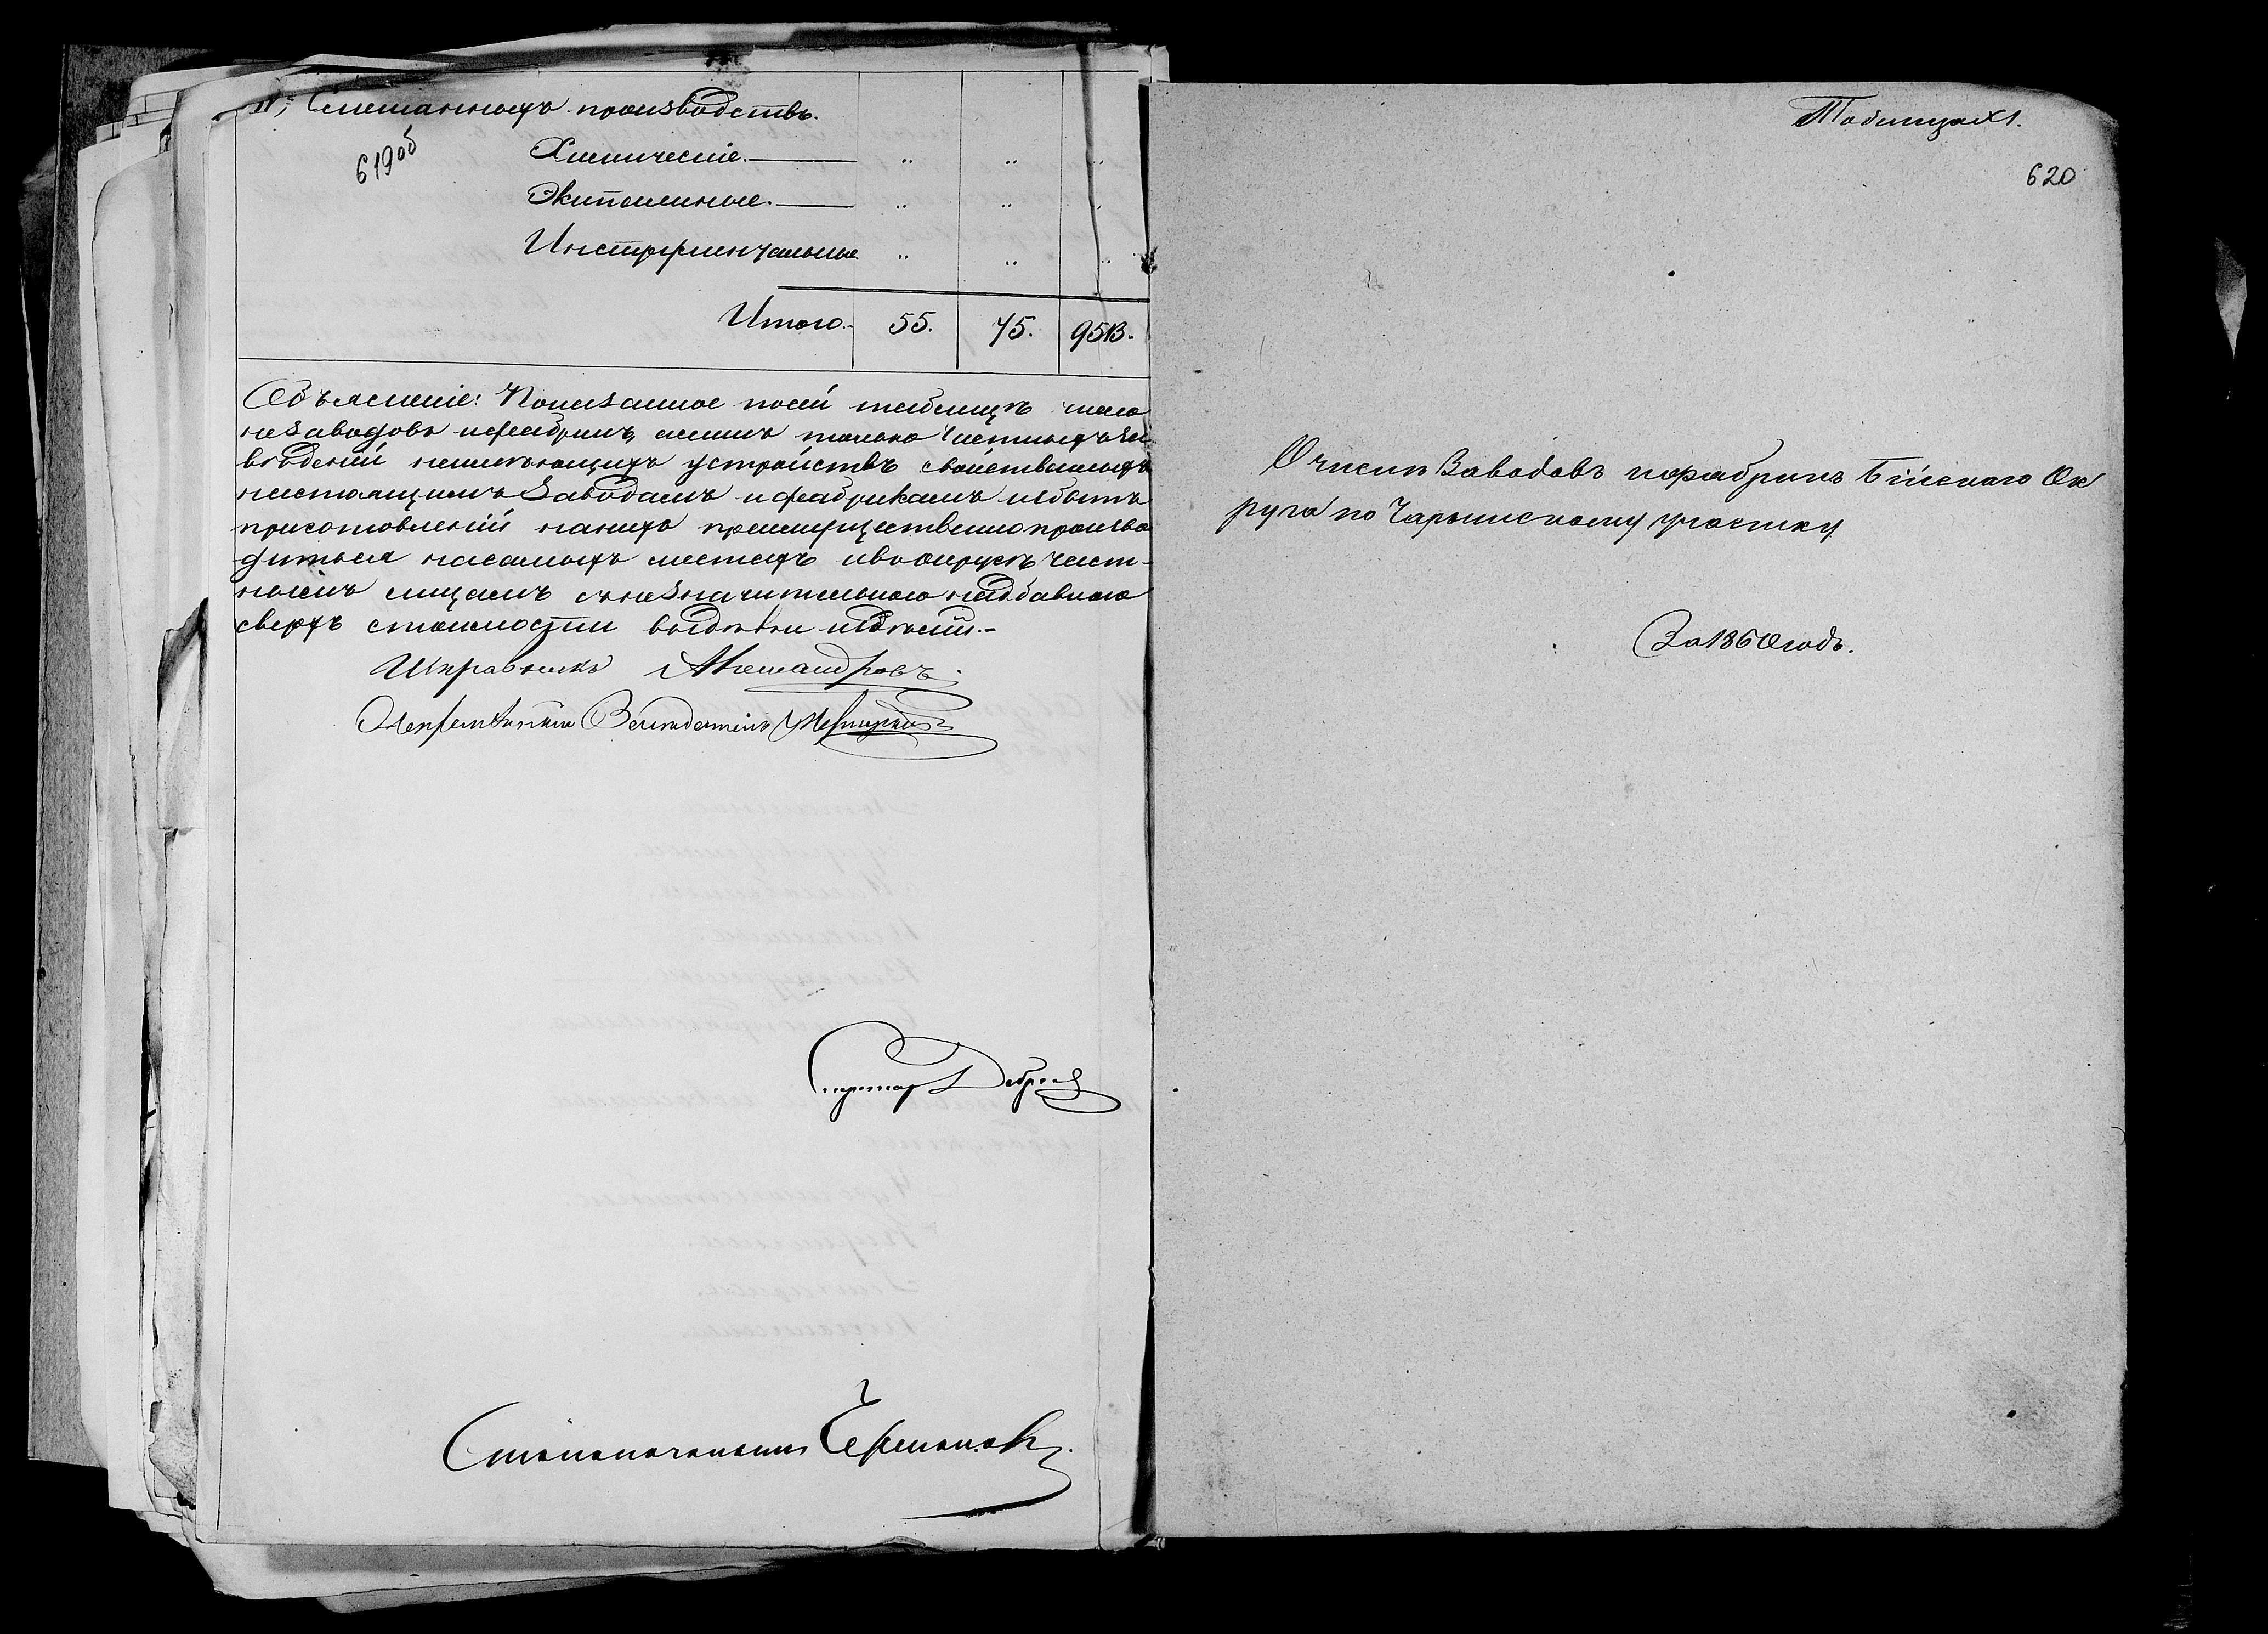 IV, Смешанныхъ производствъ.
619об
Химическіе. — „ „ „
Экипажные. — „ „ „
Инструментальные „ „ „
Итого. 55. 75. 9513.
Объясненіе: Показанное посей таблицѣ число
незаводовъ ифабрикъ, алишь только частныхъ за
вѣдений неимѣющихъ устройствъ свойственныхъ
настоящимъ Заводамъ и фабрикамъ избытъ
приготовлений нанихъ преимущественно произво
дится насамыхъ местахъ ивъ округѣ част-
нымъ лицамъ снезначительного надбавкого
сверхъ стоимости выдѣлки
Исправникъ Александровъ
Столоначальникъ
Таблица XI.
620
О числѣ Заводовъ ифабрикъ Бійского Ок
руга по Чарышскому участку
За 1860 годъ.